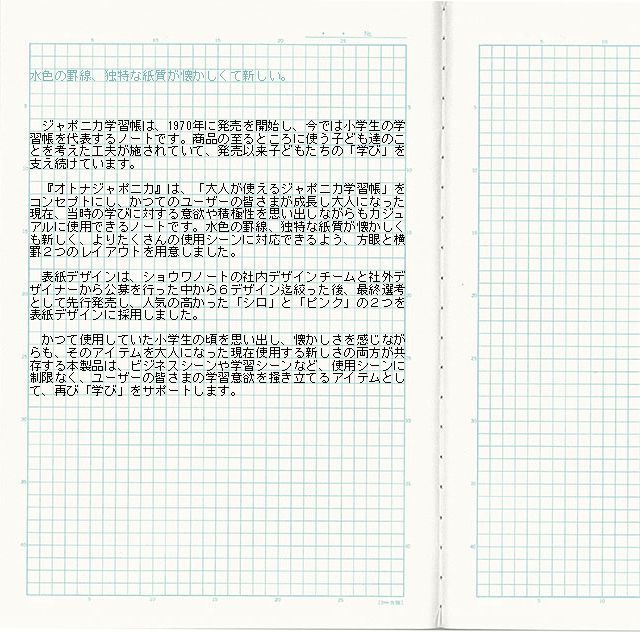 No.
水色の罫線、独特な紙質が懐かしくて新しい。
ジャポニカ学習帳は、1970年に発売を開始し、今では小学生の学
習帳を代表するノートです。商品の至るところに使う子ども達のこ
とを考えた工夫が施されていて、発売以来子どもたちの「学び」を
支え続けています。
『オトナジャポニカ』は、「大人が使えるジャポニカ学習帳」を
コンセプトにし、かつてのユーザーの皆さまが成長し大人になった
現在、当時の学びに対する意欲や積極性を思い出しながらもカジュ
アルに使用できるノートです。水色の罫線、独特な紙質が懐かしく
も新しく、よりたくさんの使用シーンに対応できるよう、方眼と横
罫２つのレイアウトを用意しました。
表紙デザインは、ショウワノートの社内デザインチームと社外デ
ザイナーから公募を行った中から６デザイン迄絞った後、最終選考
として先行発売し、人気の高かった「シロ」と「ピンク」の２つを
表紙デザインに採用しました。
かつて使用していた小学生の頃を思い出し、懐かしさを感じなが
らも、そのアイテムを大人になった現在使用する新しさの両方が共
存する本製品は、ビジネスシーンや学習シーンなど、使用シーンに
制限なく、ユーザーの皆さまの学習意欲を掻き立てるアイテムとし
て、再び「学び」をサポートします。